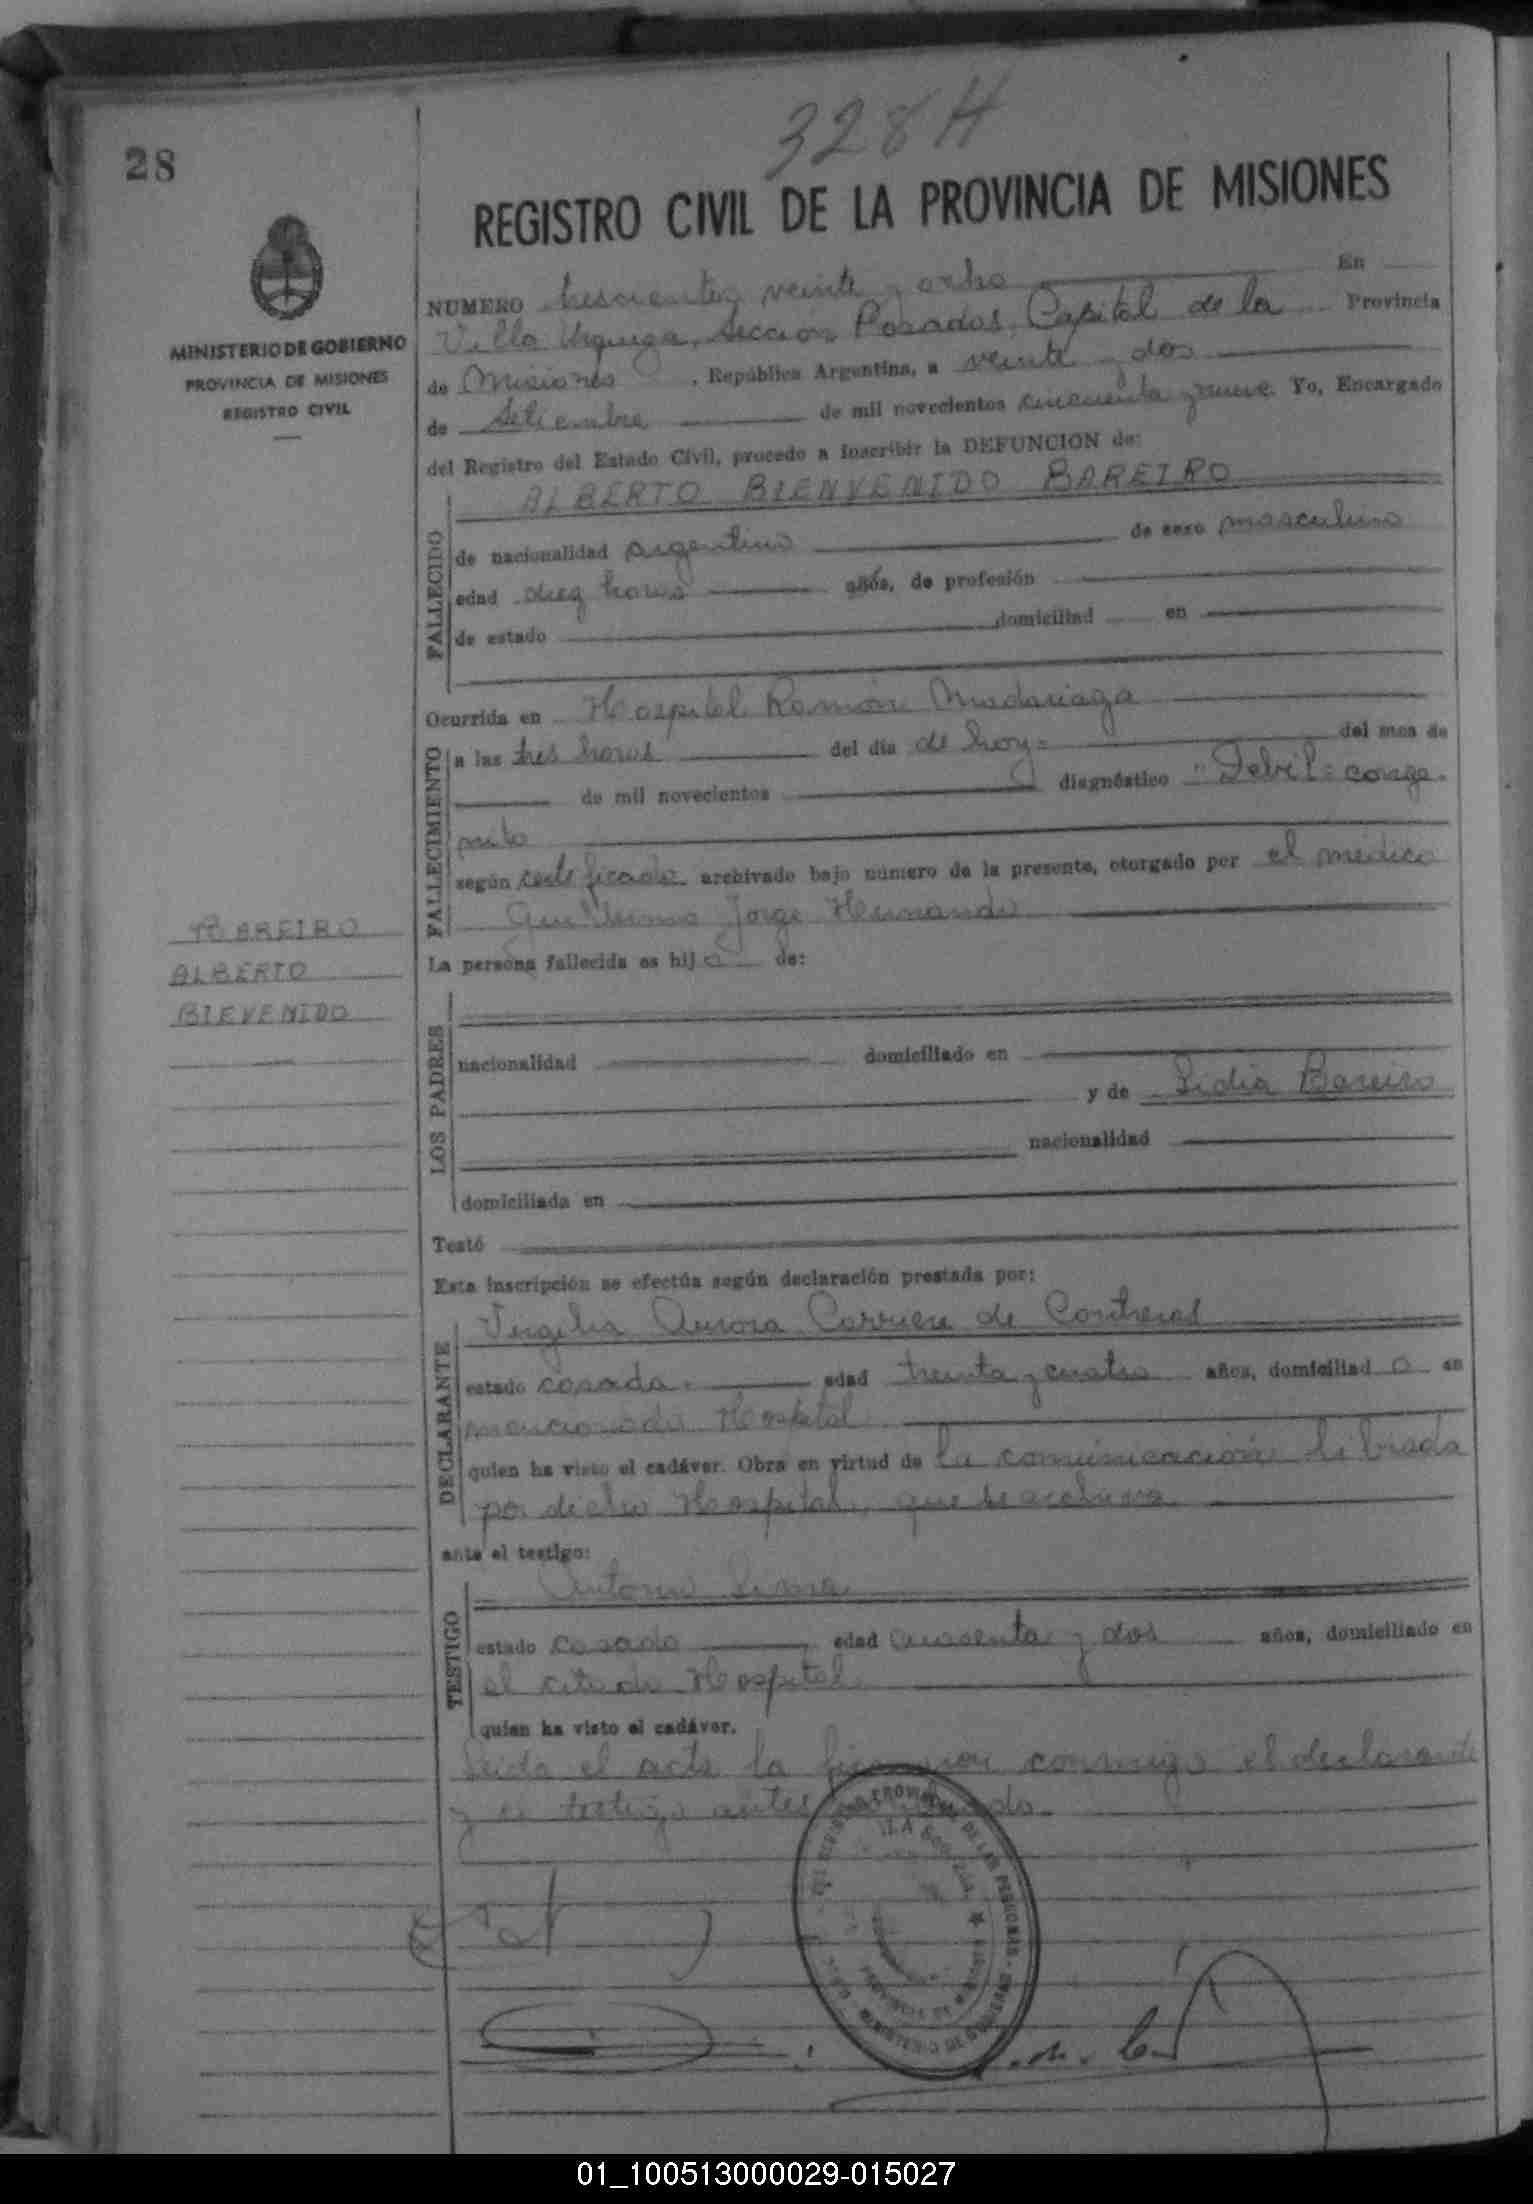 328 H
28
REGISTRO CIVIL DE LA PROVINCIA DE MISIONES
MINISTERIO DE GOBIERNO
PROVINCIA DE MISIONES
REGISTRO CIVIL
NUMERO trescientos veinte y ocho En
Villa Urquiza, Sección Posadas, Capital de la Provincia
de Misiones, República Argentina, a veinte y dos
de Setiembre de mil novecientos cincuenta y nueve Yo, Encargado
del Registro del Estado Civil, procedo a inscribir la DEFUNCION de:
ALBERTO BIENVENIDO BAREIRO
FALLECIDO
de nacionalidad argentino de sexo masculino
edad diez horas años, de profesión
de estado domiciliad en
Ocurrida en Hospital Ramón Madariaga
FALLECIMIENTO
a las tres horas del día de hoy= del mes de
de mil novecientos diagnóstico "Debil= conge-
nito
según certificado archivado bajo número de la presente, otorgado por el médico
Guillermo Jorge Hernando
BAREIRO
ALBERTO
BIEVENIDO
La persona fallecida es hij o de:
LOS PADRES
nacionalidad domiciliado en
y de Lidia Bareiro
nacionalidad
domiciliada en
Testó
Esta inscripción se efectúa según declaración prestada por:
DECLARANTE
Virgilia Aurora Carriere de Contreras
estado casada edad treinta y cuatro años, domiciliad a en
mencionado Hospital
quien ha visto el cadáver. Obra en virtud de la comunicación librada
por dicho Hospital, que se archiva
ante el testigo:
TESTIGO
Antonio
estado casado edad cuarenta y dos años, domiciliado en
el citado Hospital
quien ha visto el cadáver.
Leida el acta la conmigo el declarante
y el testigo antes
01_100513000029-015027